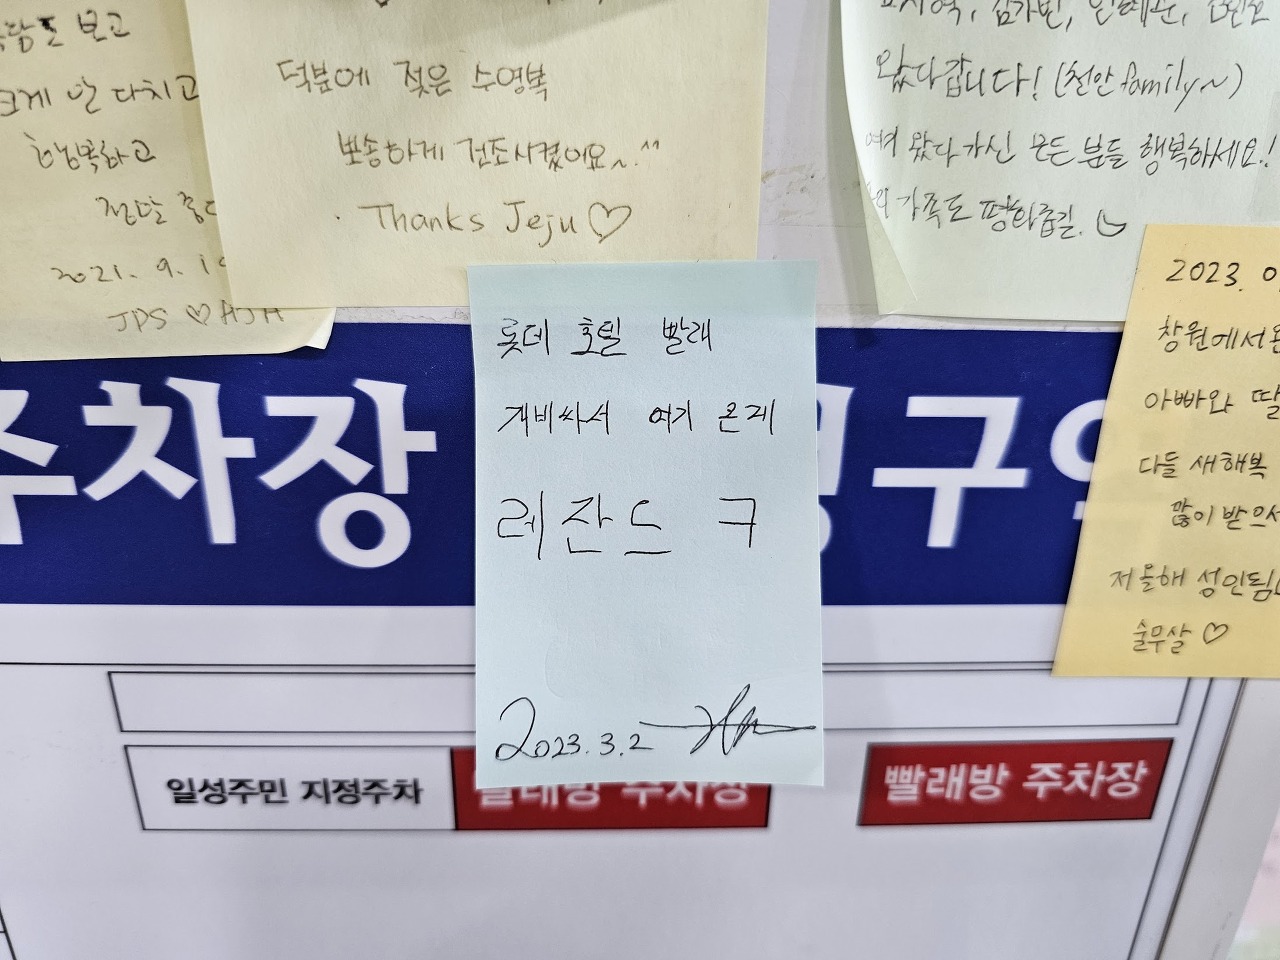 보고
크게 안 다치고
행복하고
2021. 9. 19
JPS ♡ AJH
덕분에 젖은 수영복
뽀송하게 건조시켰어요~.^^
Thanks Jeju ♡
왔다갑니다! (천안 family~)
여기 왔다 가신 모든 분들 행복하세요!
가족도 평화롭길.
롯데 호텔 빨래
개비싸서 여기 온게
레잔드 ㅋ
2023.3.2
2023. 01
창원에서 온
아빠와 딸
다들 새해복
많이 받으서
저 올해 성인됨
술무살 ♡
주차장
구역
일성주민 지정주차
빨래방 주차장
빨래방 주차장